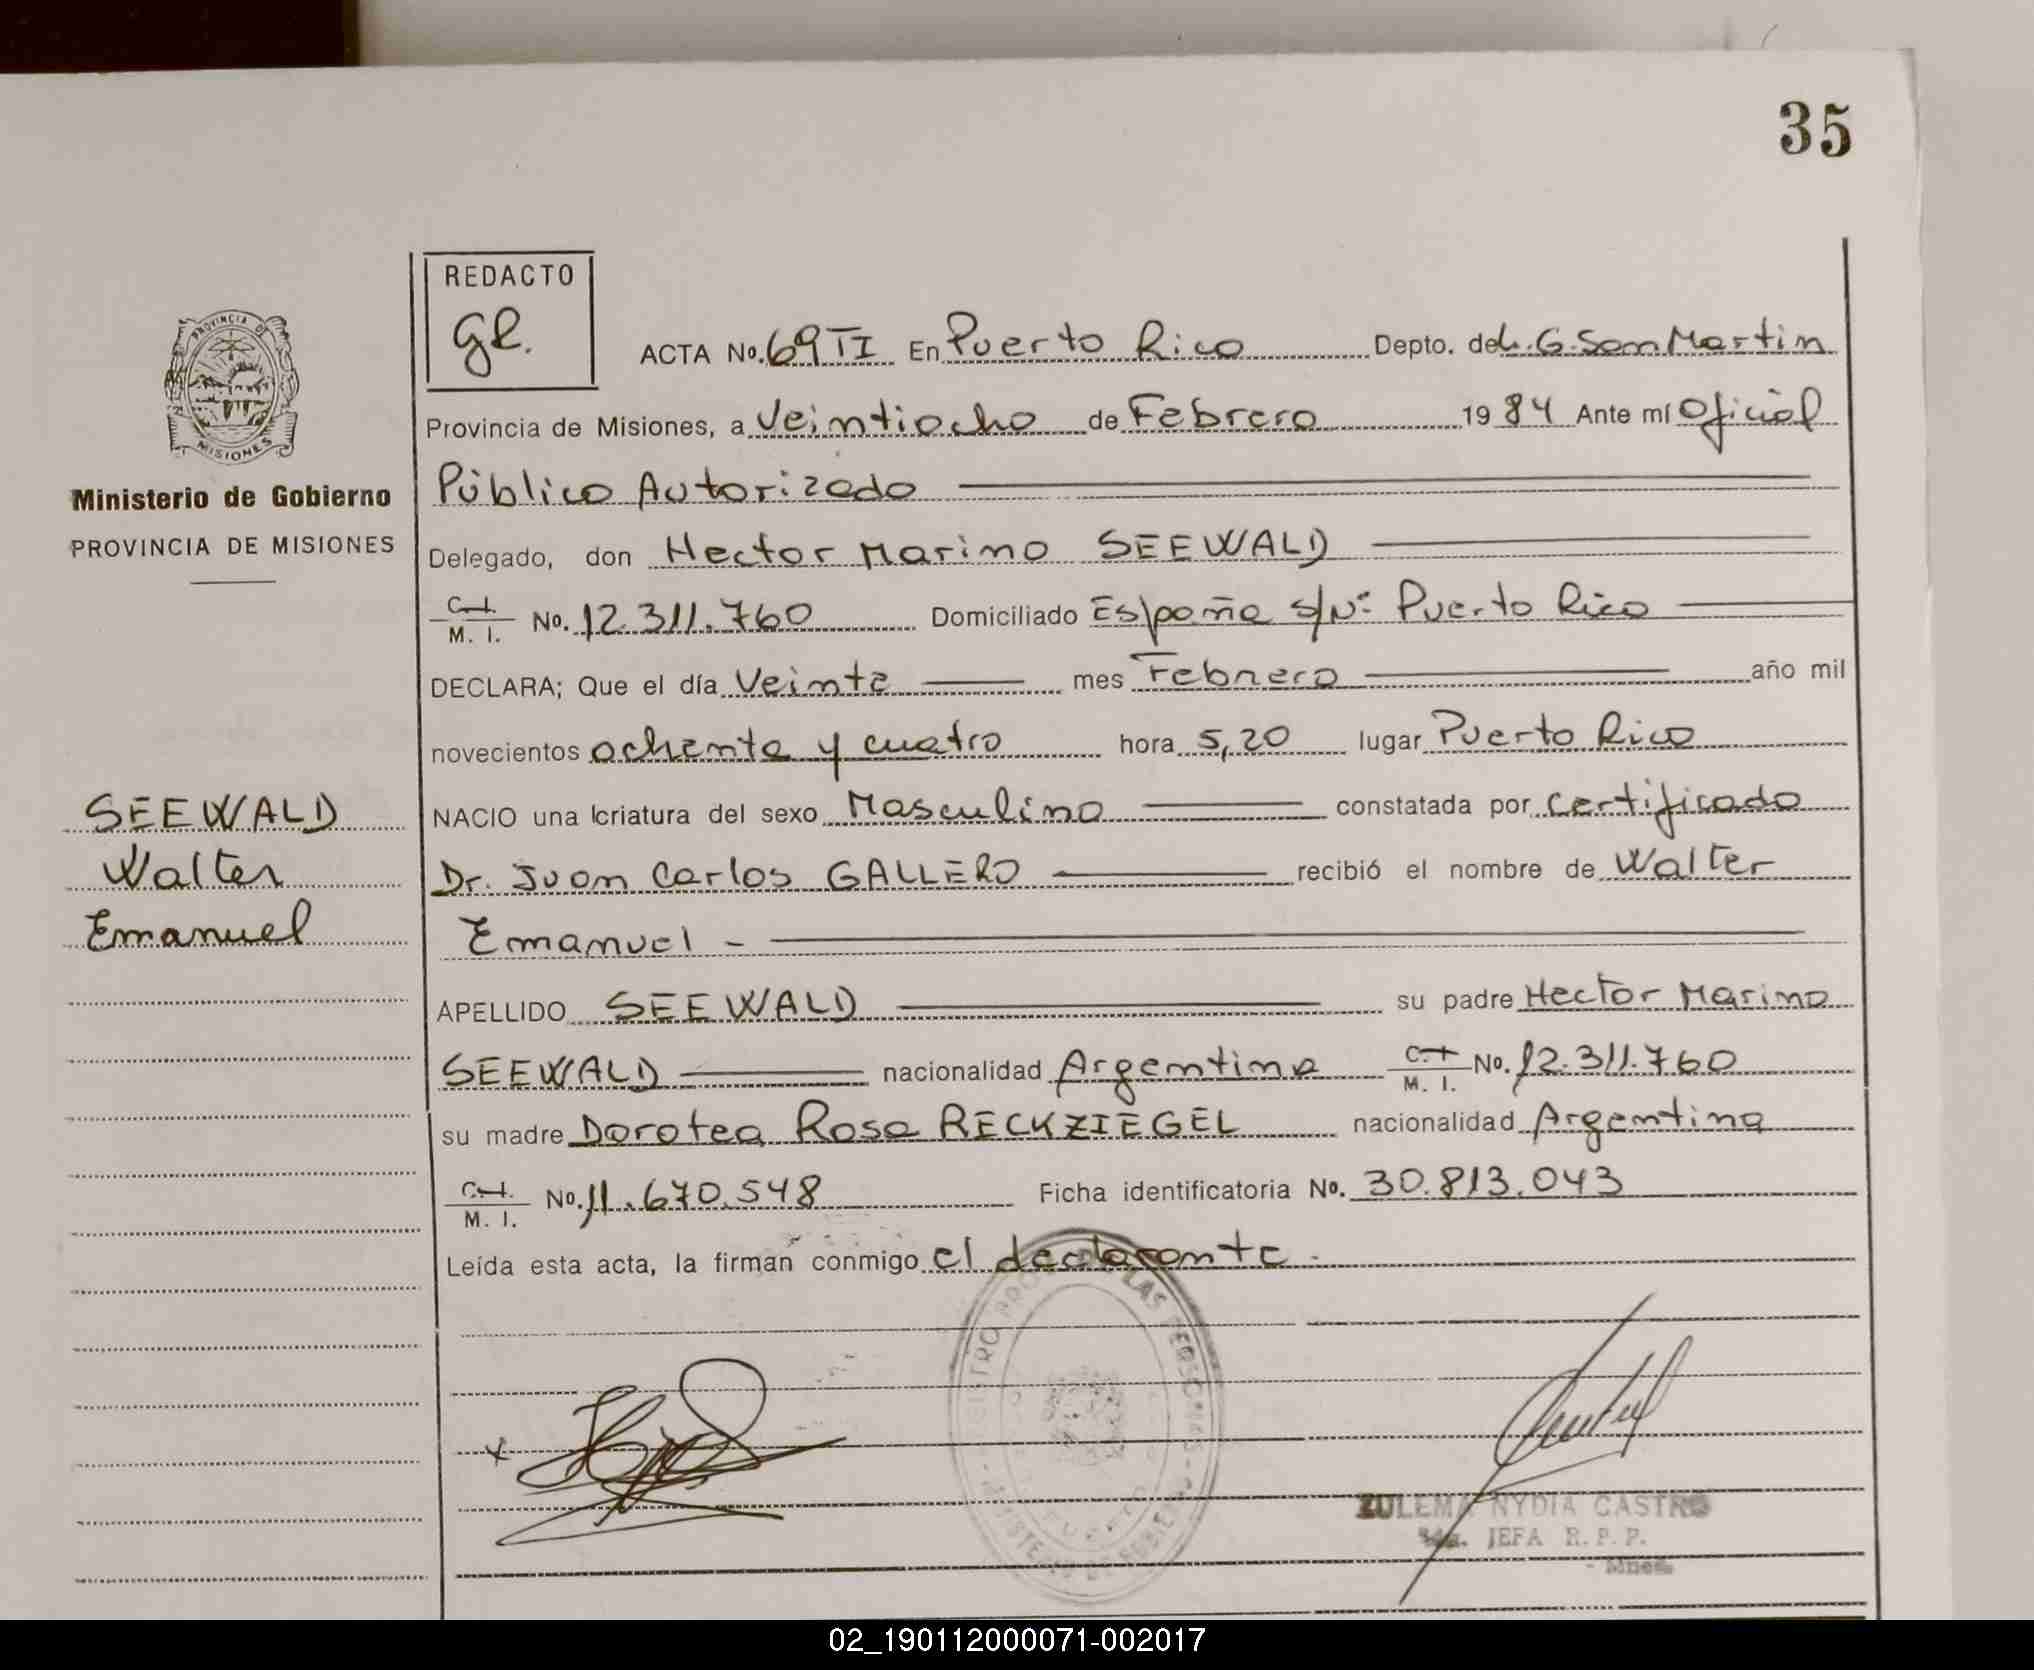 35
REDACTO
gl.
ACTA No. 69 TI En Puerto Rico Depto. de L. G. San Martin
Provincia de Misiones, a Veintiocho de Febrero 1984 Ante mí Oficial
Público Autorizado
Delegado, don Hector Marino SEEWALD
C. I.
M. I. No. 12.311.760 Domiciliado España s/Nº Puerto Rico
DECLARA; Que el día Veinte mes Febrero año mil
novecientos ochenta y cuatro hora 5,20 lugar Puerto Rico
NACIO una criatura del sexo Masculino constatada por certificado
Dr. Juan Carlos GALLERO recibió el nombre de Walter
Emanuel -
APELLIDO SEEWALD su padre Hector Marino
SEEWALD nacionalidad Argentina C. I. M. I. No. 12.311.760
su madre Dorotea Rosa RECKZIEGEL nacionalidad Argentina
C. I.
M. I. No. 11.670.548 Ficha identificatoria No. 30.813.043
Leída esta acta, la firman conmigo el declarante.
PROVINCIA DE
MISIONES
Ministerio de Gobierno
PROVINCIA DE MISIONES
SEEWALD
Walter
Emanuel
ZULEMA NYDIA CASTRO
JEFA R. P. P.
Mnes.
02_190112000071-002017